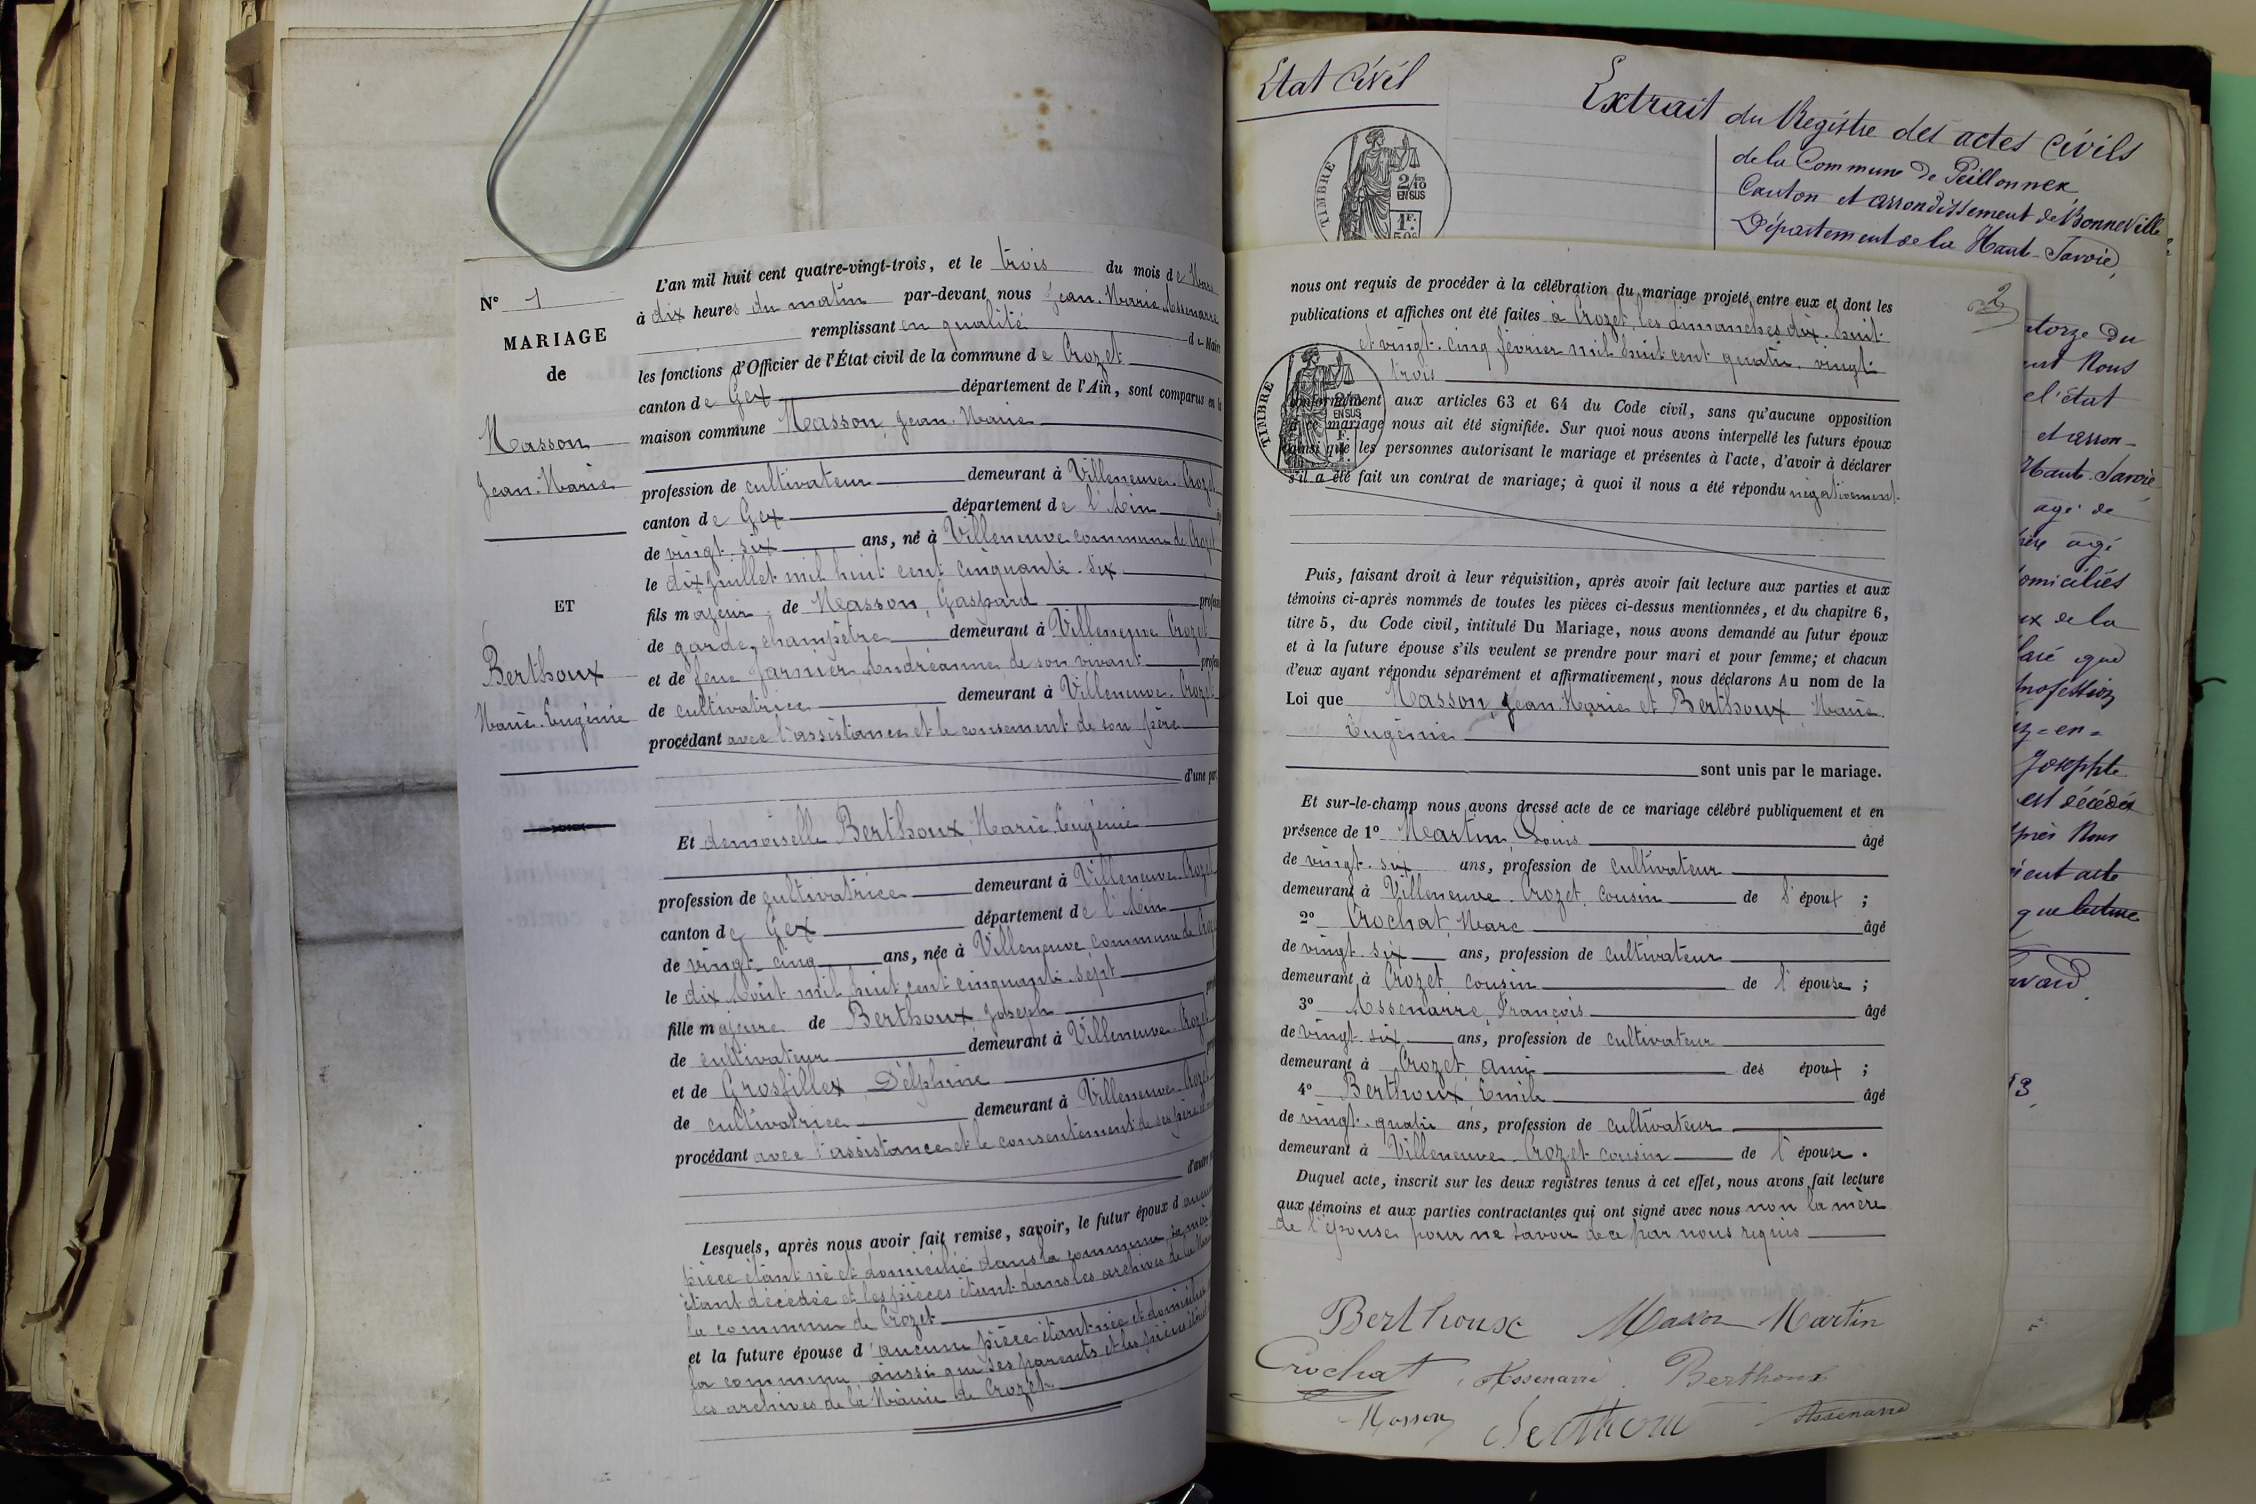 N° 1
MARIAGE
de
Masson
Jean-Marie
ET
Berthoux
Marie-Eugénie
L'an mil huit cent quatre-vingt-trois, et le trois du mois de Mars
à dix heures du matin par-devant nous Jean-Marie Assenarre
remplissant en qualité de Maire
les fonctions d'Officier de l'État civil de la commune de Crozet
canton de Gex département de l'Ain, sont comparus en la
maison commune Masson, Jean-Marie
profession de cultivateur demeurant à Villeneuve-Crozet
canton de Gex département de l'Ain
de vingt-six ans, né à Villeneuve commune de Crozet
le dix juillet mil huit cent cinquante-six
fils majeur, de Masson, Gaspard
de garde-champêtre demeurant à Villeneuve Crozet
et de feue Jarnier Andréanne, de son vivant
de cultivatrice demeurant à Villeneuve-Crozet
procédant avec l'assistance et le consement de son père
d'une par
Et demoiselle Berthoux, Marie-Eugénie
profession de cultivatrice demeurant à Villeneuve-Crozet
canton de Gex département de l'Ain
de vingt-cinq ans, née à Villeneuve, commune de Croz
le dix Août mil huit cent cinquante-sept
fille majeure de Berthoux, Joseph
de cultivateur demeurant à Villeneuve-Crozet
et de Grosfillex, Délphine
de cultivatrice demeurant à Villeneuve-Crozet
procédant avec l'assistance et le consentement de ses père et
Lesquels, après nous avoir fait remise, savoir, le futur époux d'aucune
pièce étant né et domicilié dans la commune, sa mère
étant décédée et les pièces étant dans les archives de la
la commune de Crozet
et la future épouse d'aucune pièce étant née et domiciliée
la commune ainsi que ses parents et les pièces
les archives de la Mairie de Crozet
Etat Civil
Extrait du Registre des actes Civils
de la Commune de Peillonnex
Canton et arrondissement de Bonneville
Département de la Haute-Savoie
TIMBRE
2/10
EN SUS
1F.
50c
2
nous ont requis de procéder à la célébration du mariage projeté entre eux et dont les
publications et affiches ont été faites à Crozet, les dimanches dix-huit
et vingt-cinq février mil huit cent quatre-vingt
trois
TIMBRE
EN SUS
conformément aux articles 63 et 64 du Code civil, sans qu'aucune opposition
à ce mariage nous ait été signifiée. Sur quoi nous avons interpellé les futurs époux
ainsi que les personnes autorisant le mariage et présentes à l'acte, d'avoir à déclarer
s'il a été fait un contrat de mariage; à quoi il nous a été répondu négativement.
Puis, faisant droit à leur réquisition, après avoir fait lecture aux parties et aux
témoins ci-après nommés de toutes les pièces ci-dessus mentionnées, et du chapitre 6,
titre 5, du Code civil, intitulé Du Mariage, nous avons demandé au futur époux
et à la future épouse s'ils veulent se prendre pour mari et pour femme; et chacun
d'eux ayant répondu séparément et affirmativement, nous déclarons Au nom de la
Loi que Masson, Jean-Marie et Berthoux, Marie-
Eugénie
sont unis par le mariage.
Et sur-le-champ nous avons dressé acte de ce mariage célébré publiquement et en
présence de 1° Martin, Louis âgé
de vingt-six ans, profession de cultivateur
demeurant à Villeneuve-Crozet, cousin de l'époux ;
2° Crochat, Marc âgé
de vingt-six ans, profession de cultivateur
demeurant à Crozet, cousin de l'épouse ;
3° Assenarre, François âgé
de vingt-six ans, profession de cultivateur
demeurant à Crozet, ami des époux ;
4° Berthoux, Emile âgé
de vingt-quatre ans, profession de cultivateur
demeurant à Villeneuve-Crozet cousin de l'épouse.
Duquel acte, inscrit sur les deux registres tenus à cet effet, nous avons fait lecture
aux témoins et aux parties contractantes qui ont signé avec nous non la mère
de l'épouse pour ne savoir de ce par nous requis
Berthoux Masson Martin
Crochat Assenarre Berthoux
Masson Berthoux Assenarre
Nous
l'état
et arron-
Haute-Savoie
agé de
agé
domiciliés
de la
que
profession
en-
Josephte
est décédée
après Nous
acte
que lecture